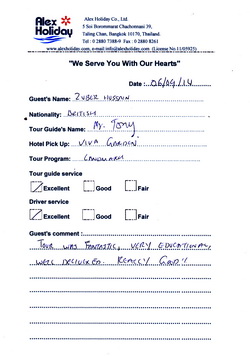 Alex Holiday
Alex Holiday Co., Ltd.
5 Soi Borommarat Chachonnani 39,
Taling Chan, Bangkok 10170, Thailand.
Tel : 0 2880 7388-9 Fax : 0 2880 8261
www.alexholiday.com, e-mail info@alexholiday.com (License No.11/05925)
"We Serve You With Our Hearts"
Date : 06/04/14
Guest's Name: ZUBER HUSSAIN
Nationality: BRITISH
Tour Guide's Name: Mr. TONY
Hotel Pick Up: VIVA GARDEN
Tour Program: LANDMARK
Tour guide service
Excellent Good Fair
Driver service
Excellent Good Fair
Guest's comment :
TOUR WAS FANTASTIC, VERY EDUCATIONAL
WELL DELIVERED. REALLY GOOD!